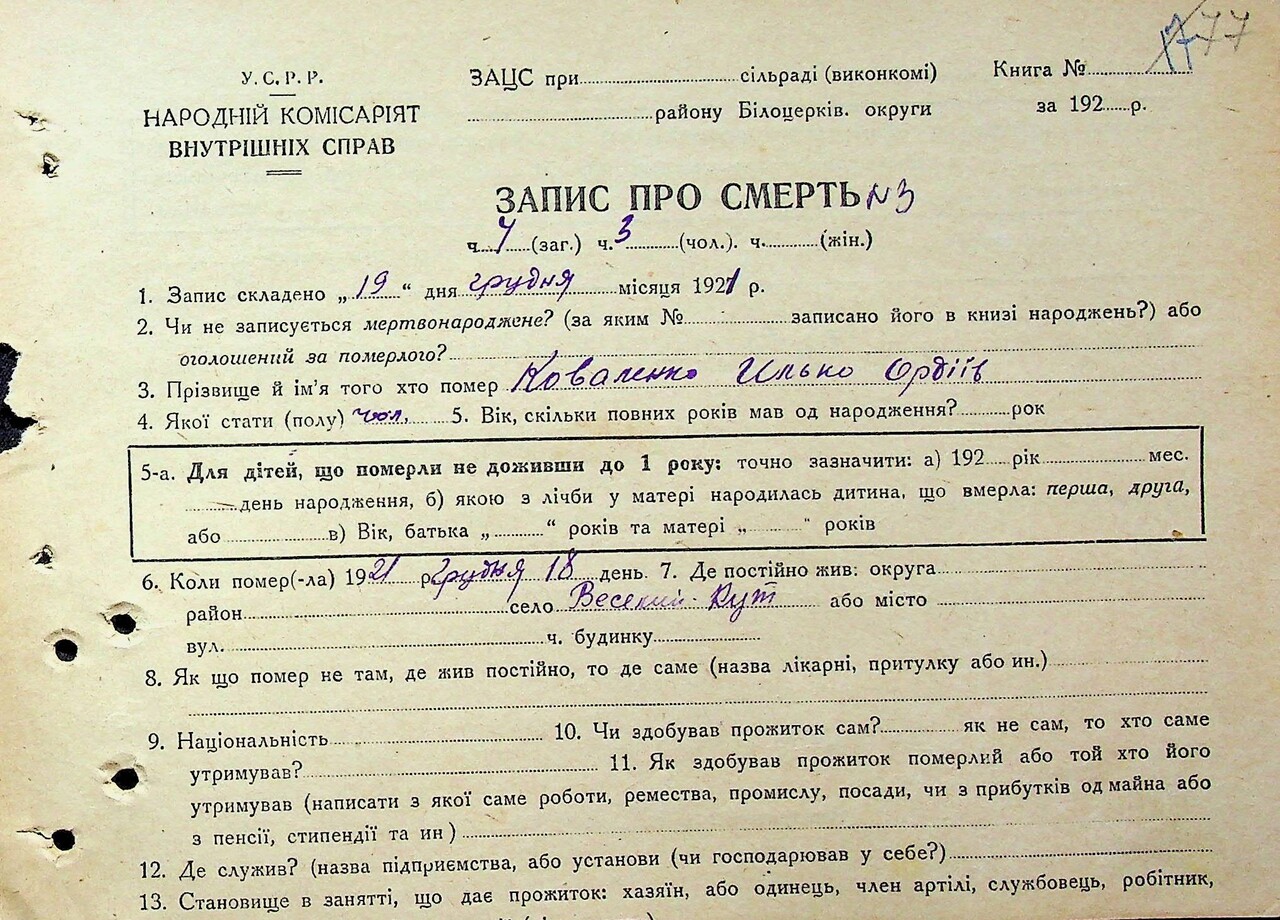 77
У. С. Р. Р.
НАРОДНІЙ КОМІСАРІЯТ
ВНУТРІШНІХ СПРАВ
ЗАЦС при.....................сільраді (виконкомі)
.....................району Білоцерків. округи
Книга №............
за 192.....р.
ЗАПИС ПРО СМЕРТЬ N 3
ч. 4 (заг.) ч. 3 (чол.). ч............(жін.)
1. Запис складено „ 19 “ дня грудня місяця 1921 р.
2. Чи не записується мертвонароджене? (за яким №............записано його в книзі народжень?) або
оголошений за померлого?............
3. Прізвище й ім'я того хто помер Коваленко Илько
4. Якої стати (полу) чол. 5. Вік, скільки повних років мав од народження?..........рок
5-а. Для дітей, що померли не доживши до 1 року: точно зазначити: а) 192.....рік...............мес.
..........день народження, б) якою з лічби у матері народилась дитина, що вмерла: перша, друга,
або................в) Вік, батька „..........“ років та матері „..........“ років
6. Коли помер(-ла) 1921 р. грудня 18 день. 7. Де постійно жив: округа............
район............село Веселий Кут або місто............
вул.............ч. будинку............
8. Як що помер не там, де жив постійно, то де саме (назва лікарні, притулку або ин.)............
9. Національність............ 10. Чи здобував прожиток сам?............як не сам, то хто саме
утримував?............ 11. Як здобував прожиток померлий або той хто його
утримував (написати з якої саме роботи, ремества, промислу, посади, чи з прибутків од майна або
з пенсії, стипендії та ин)............
12. Де служив? (назва підприємства, або установи (чи господарював у себе?)............
13. Становище в занятті, що дає прожиток: хазяїн, або одинець, член артілі, службовець, робітник,